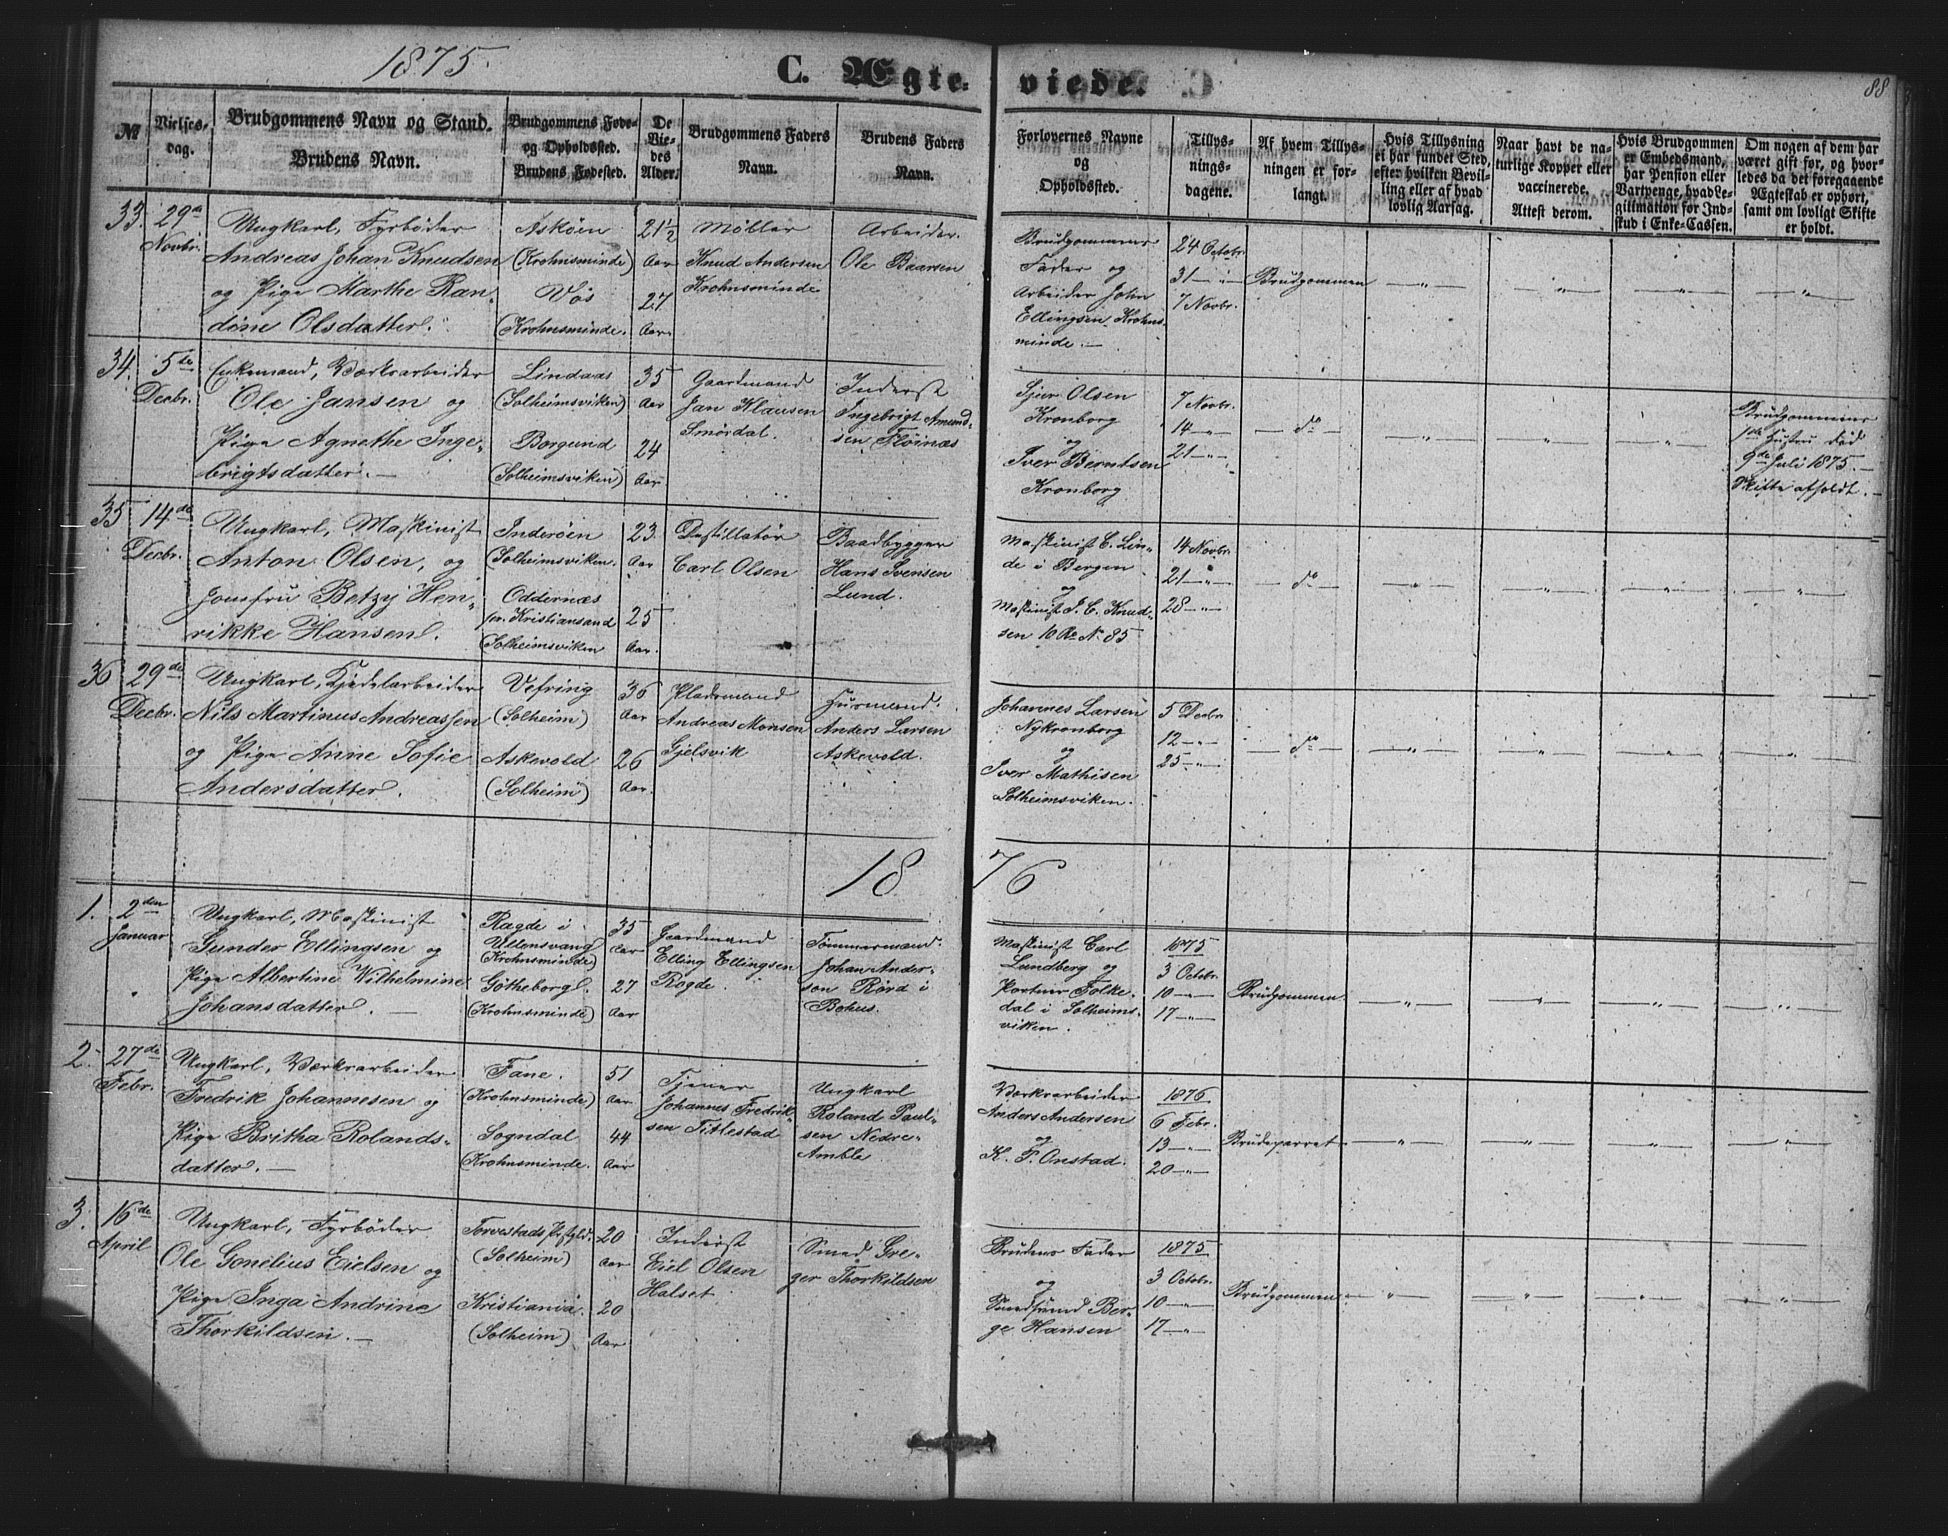 1875.
C. Ægte- viede.
88
№
Vielses-
dag.
Brudgommens Navn og Stand.
Brudens Navn.
Brudgommens Føde-
og Opholdssted.
Brudens Fødested.
De
Vie-
des
Alder.
Brudgommens Faders
Navn.
Brudens Faders
Navn.
Forlovernes Navne
og
Opholdssted.
Tillys-
nings-
dagene.
Af hvem Tillys-
ningen er for-
langt.
Hvis Tillysning
ei har fundet Sted,
efter hvilken Bevil-
ling eller af hvad
lovlig Aarsag.
Naar havt de na-
turlige Kopper eller
vaccinerede.
Attest derom.
Hvis Brudgommen
er Embedsmand,
har Pension eller
Vartpenge, hvad Le-
gitimation for Ind-
skud i Enke-Cassen.
Om nogen af dem har
været gift før, og hvor-
ledes da det foregaaende
Ægteskab er ophørt,
samt om lovligt Skifte
er holdt.
33. 29de
Novbr.
Ungkarl, Fyrbøder
Andreas Johan Knudsen
og Pige Marthe Ran-
dine Olsdatter.
Askøen
(Krohnsminde)
Vos
(Krohnsminde.
21½
Aar
27
Aar.
Møller
Knud Andersen
Krohnsminde
Arbeider.
Ole Baarsen
Brudgommens
Fader og
Arbeider John
Ellingsen Krohns-
minde.
24 Octobr.
31 — " —
7 Novbr.
Brudgommen
— " — — " — — " — — " —
34. 5te
Decbr.
Enkemand, Værksarbeider
Ole Jansen og
Pige Agnethe Inge-
brigtsdatter. —
Lindaas
(Solheimsviken)
Borgund
(Solheimsviken)
35
Aar
24
Aar
Gaardmand
Jan Klausen
Smørdal.
Inderst
Ingebrigt Amund-
sen Fløinæs
Sjur Olsen
Kronborg
og
Iver Berntsen
Kronborg
7 Novbr.
14 — " —
21 — " —
— do —
— " — — " — — " —
Brudgommens
1ste Hustru død
9de Juli 1875. —
Skifte afholdt. —
35 14de
Decbr.
Ungkarl, Maskinist
Anton Olsen, og
Jomfru Betzy Hen-
rikke Hansen.
Inderøen
Solheimsviken.
Oddernæs
pr. Kristiansand
(Solheimsviken
23.
Aar
25
Aar.
Destillatør
Carl Olsen
Baadbygger
Hans Svensen
Lund.
Maskinist C. Lin-
de i Bergen
og
Maskinist J. C. Knud-
sen 10 Ro № 85
14 Novbr.
21 — " —
28 — " —
— do —
— " — — " — — " — — " —
36 29de
Decbr.
Ungkarl, Kjedelarbeider
Nils Martinus Andreassen
og Pige Anne Sofie
Andersdatter.
Vefring
(Solheim)
Askevold
(Solheim)
36
Aar
26
Aar.
Pladsmand
Andreas Monsen
Gjelsvik
Huusmand.
Anders Larsen
Askevold.
Johannes Larsen
Nykronborg
og
Iver Mathisen
Solheimsviken.
5 Decbr
12 — " —
25 — " —
— do —
— " — — " — — " — — " —
18 76
1. 2den
Januar
Ungkarl, Maskinist
Gunder Ellingsen og
Pige Albertine Wilhelmine
Johansdatter. —
Ragde i
Ullensvang
Krohnsminde)
Götheborg.
(Krohnsminde)
35
Aar
27
Aar
Gaardmand
Elling Ellingsen
Ragde.
Tømmermand.
Johan Ander-
son Rörd i
Bohus.
Maskinist Carl
Lundberg og
Portner Folke-
dal i Solheims-
viken.
1875
3 Octobr.
10 — " —
17 — " —
Brudgommen.
— " — — " — — " — — " —
2. 27de
Febr.
Ungkarl, Værksarbeider
Fredrik Johannesen og
Pige Britha Rolands-
datter. —
Fane.
(Krohnsminde)
Sogndal
Krohnsminde.
51
Aar
44
Aar
Tjener
Johannes Fredrik-
sen Titlestad
Ungkarl
Roland Paul-
sen Nedre-
Amble
Værksarbeider
Anders Andersen
og
K. F. Onstad.
1876
6 Febr.
13 — " —
20 — " —
Brudeparret
— " — — " — — " — — " —
3. 16de
April
Ungkarl, Fyrbøder
Ole Gonelius Eielsen og
Pige Inga Andrine
Thorkildsen. —
Torvestads Pgld.
(Solheim)
Kristiania.
(Solheim)
20
Aar
20
Aar
Inderst
Eiel Olsen
Halset
Smed Gre-
ger Thorkildsen
Brudens Fader
og
Smedsvend Ber-
ge Hansen
1875
3 Octobr.
10 — " —
17 — " —
Brudgommen
— " — — " — — " — — " —